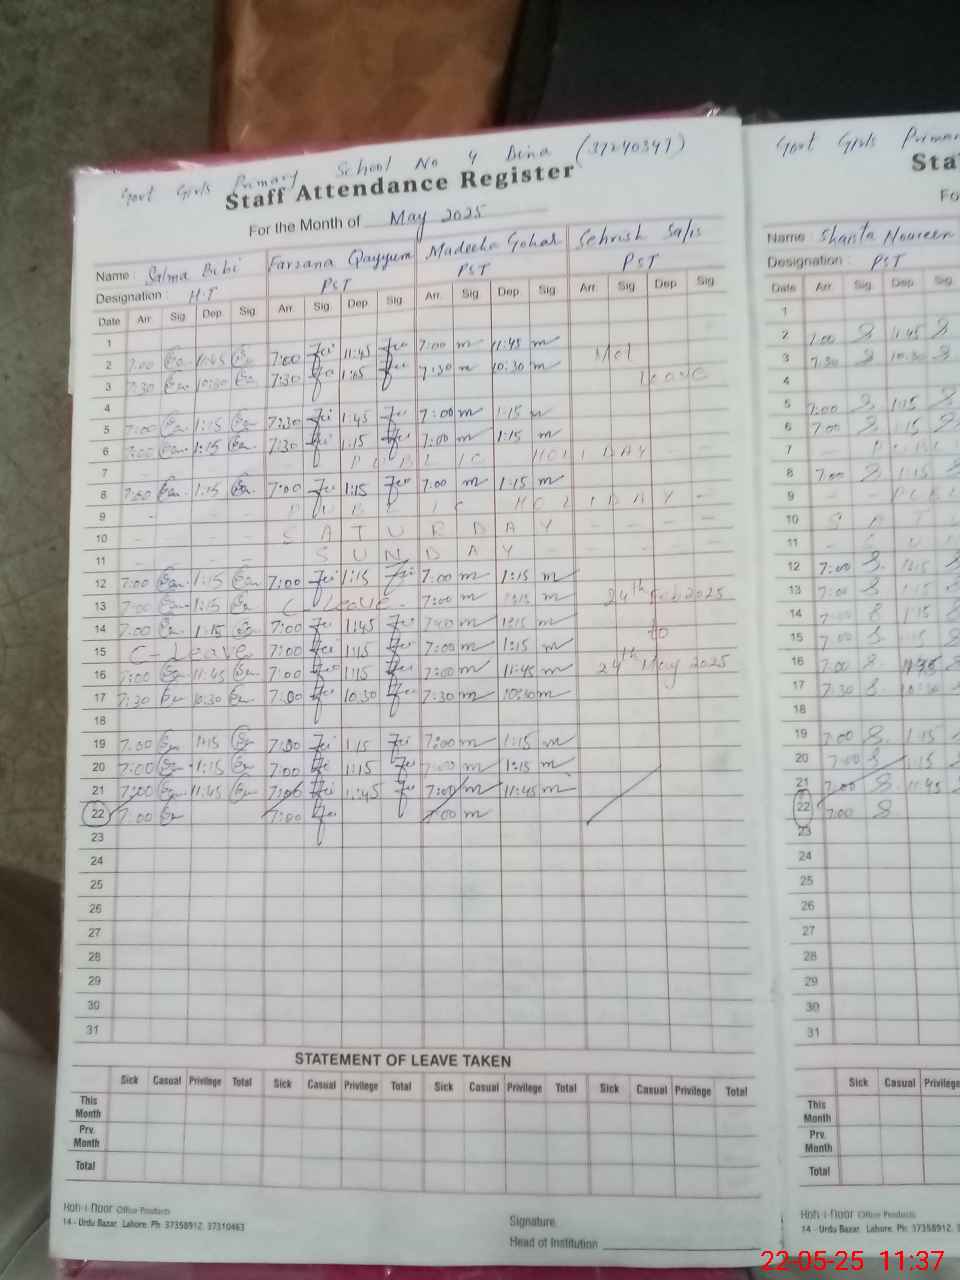 Govt Girls Primary School No 4 Dina (37240347)
Staff Attendance Register
For the Month of May 2025
Name : Salma Bibi Farzana Qayyum Madeeha Gohar Sehrish Safis
Designation : H.T PST PST PST
Date Arr. Sig. Dep. Sig. Arr. Sig. Dep. Sig. Arr. Sig. Dep. Sig. Arr. Sig. Dep. Sig.
1
2 7:00 11:45 7:00 11:45 7:00 m 11:45 m
3 7:30 10:30 7:30 1:15 7:30 m 10:30 m Leave
4
5 7:00 1:15 7:30 1:45 7:00 m 1:15 m
6 7:00 1:15 7:30 1:15 7:00 m 1:15 m
7 PUBLIC HOLIDAY
8 7:00 1:15 7:00 1:15 7:00 m 1:15 m
9 PUBLIC HOLIDAY
10 SATURDAY
11 SUNDAY
12 7:00 1:15 7:00 1:15 7:00 m 1:15 m
13 7:00 1:15 C-Leave 7:00 m 1:15 m 24th Feb 2025
14 7:00 1:15 7:00 1:45 7:00 m 1:15 m to
15 C-Leave 7:00 1:15 7:00 m 1:15 m
16 7:00 11:45 7:00 1:15 7:00 m 11:45 m 24th May 2025
17 7:30 10:30 7:00 10:30 7:30 m 10:30 m
18
19 7:00 1:15 7:00 1:15 7:00 m 1:15 m
20 7:00 1:15 7:00 1:15 7:00 m 1:15 m
21 7:00 11:45 7:00 11:45 7:00 m 11:45 m
22 7:00 7:00 7:00 m
23
24
25
26
27
28
29
30
31
STATEMENT OF LEAVE TAKEN
Sick Casual Privilege Total Sick Casual Privilege Total Sick Casual Privilege Total Sick Casual Privilege Total
This Month
Prv. Month
Total
Hoh-i-Noor Office Products
14 - Urdu Bazar, Lahore. Ph: 37358912, 37310463
Signature
Head of Institution
Govt Girls Primary
Sta
Fo
Name : Shasta Noureen
Designation : PST
Date Arr. Sig. Dep. Sig.
1
2 7:00 11:45
3 7:30 10:30
4
5 7:00 1:15
6 7:00 1:15
7
8 7:00 1:15
9
10
11
12 7:00 1:15
13 7:00 1:15
14 7:00 1:15
15 7:00 1:15
16 7:00 11:45
17 7:30 10:30
18
19 7:00 1:15
20 7:00 1:15
21 7:00 11:45
22 7:00
23
24
25
26
27
28
29
30
31
Sick Casual Privilege
This Month
Prv. Month
Total
Hoh-i-Noor Office Products
14 - Urdu Bazar, Lahore. Ph: 37358912, 3
22-05-25 11:37